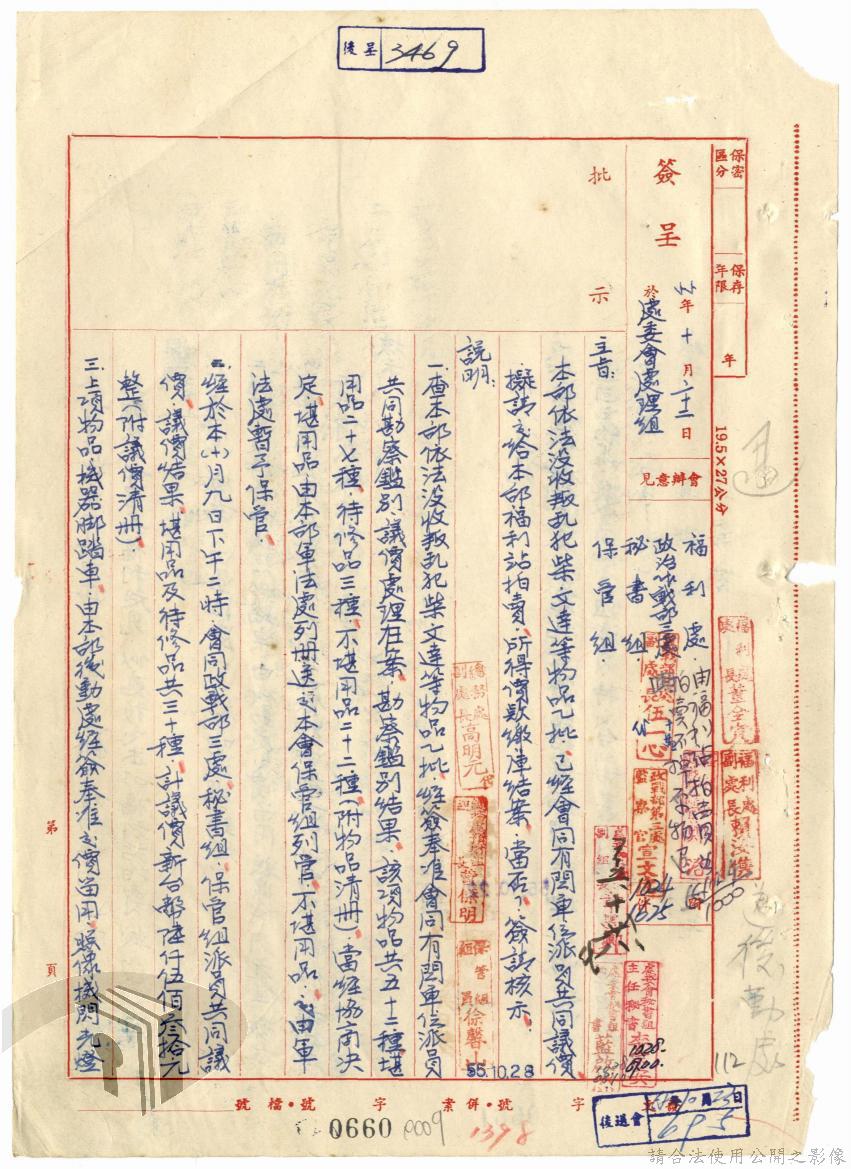 後呈 3469
保密區分
保存年限
年
19.5×27公分
簽呈
年十月廿二日
於處委會處理組
會辦意見
福利處
政治作戰部三處
秘書組
保管組
批示
主旨:
本部依法沒收叛亂犯柴文達等物品乙批,已經會同有關單位派員共同議價,
擬請交給本部福利站拍賣,所得價款繳庫結案,當否?簽請核示。
說明:
一、查本部依法沒收叛亂犯柴文達等物品乙批,經簽奉准會同有關單位派員
共同勘察鑑別、議價處理在案,勘察鑑別結果,該項物品共五十二種,堪
用品二十七種,待修品三種,不堪用品二十二種(附物品清冊),當經協商決
定,堪用品由本部軍法處列冊送交本會保管組列管,不堪用品,交由軍
法處暫予保管。
二、經於本(十)月九日下午二時,會同政戰部三處、秘書組、保管組派員共同議
價,議價結果,堪用品及待修品共三十種,計議價新台幣陸仟伍佰叁拾元
整(附議價清冊)。
三、上項物品,機器脚踏車,由本部後勤處經簽奉准,交價留用,照像機閃光燈
高明元
伍一心
宣文
徐馨
55.10.28
1028
0900
送後勤處
112
第 頁
字 號・併案 字 號・檔號
0660
0009
1398
後送會
695
請合法使用公開之影像